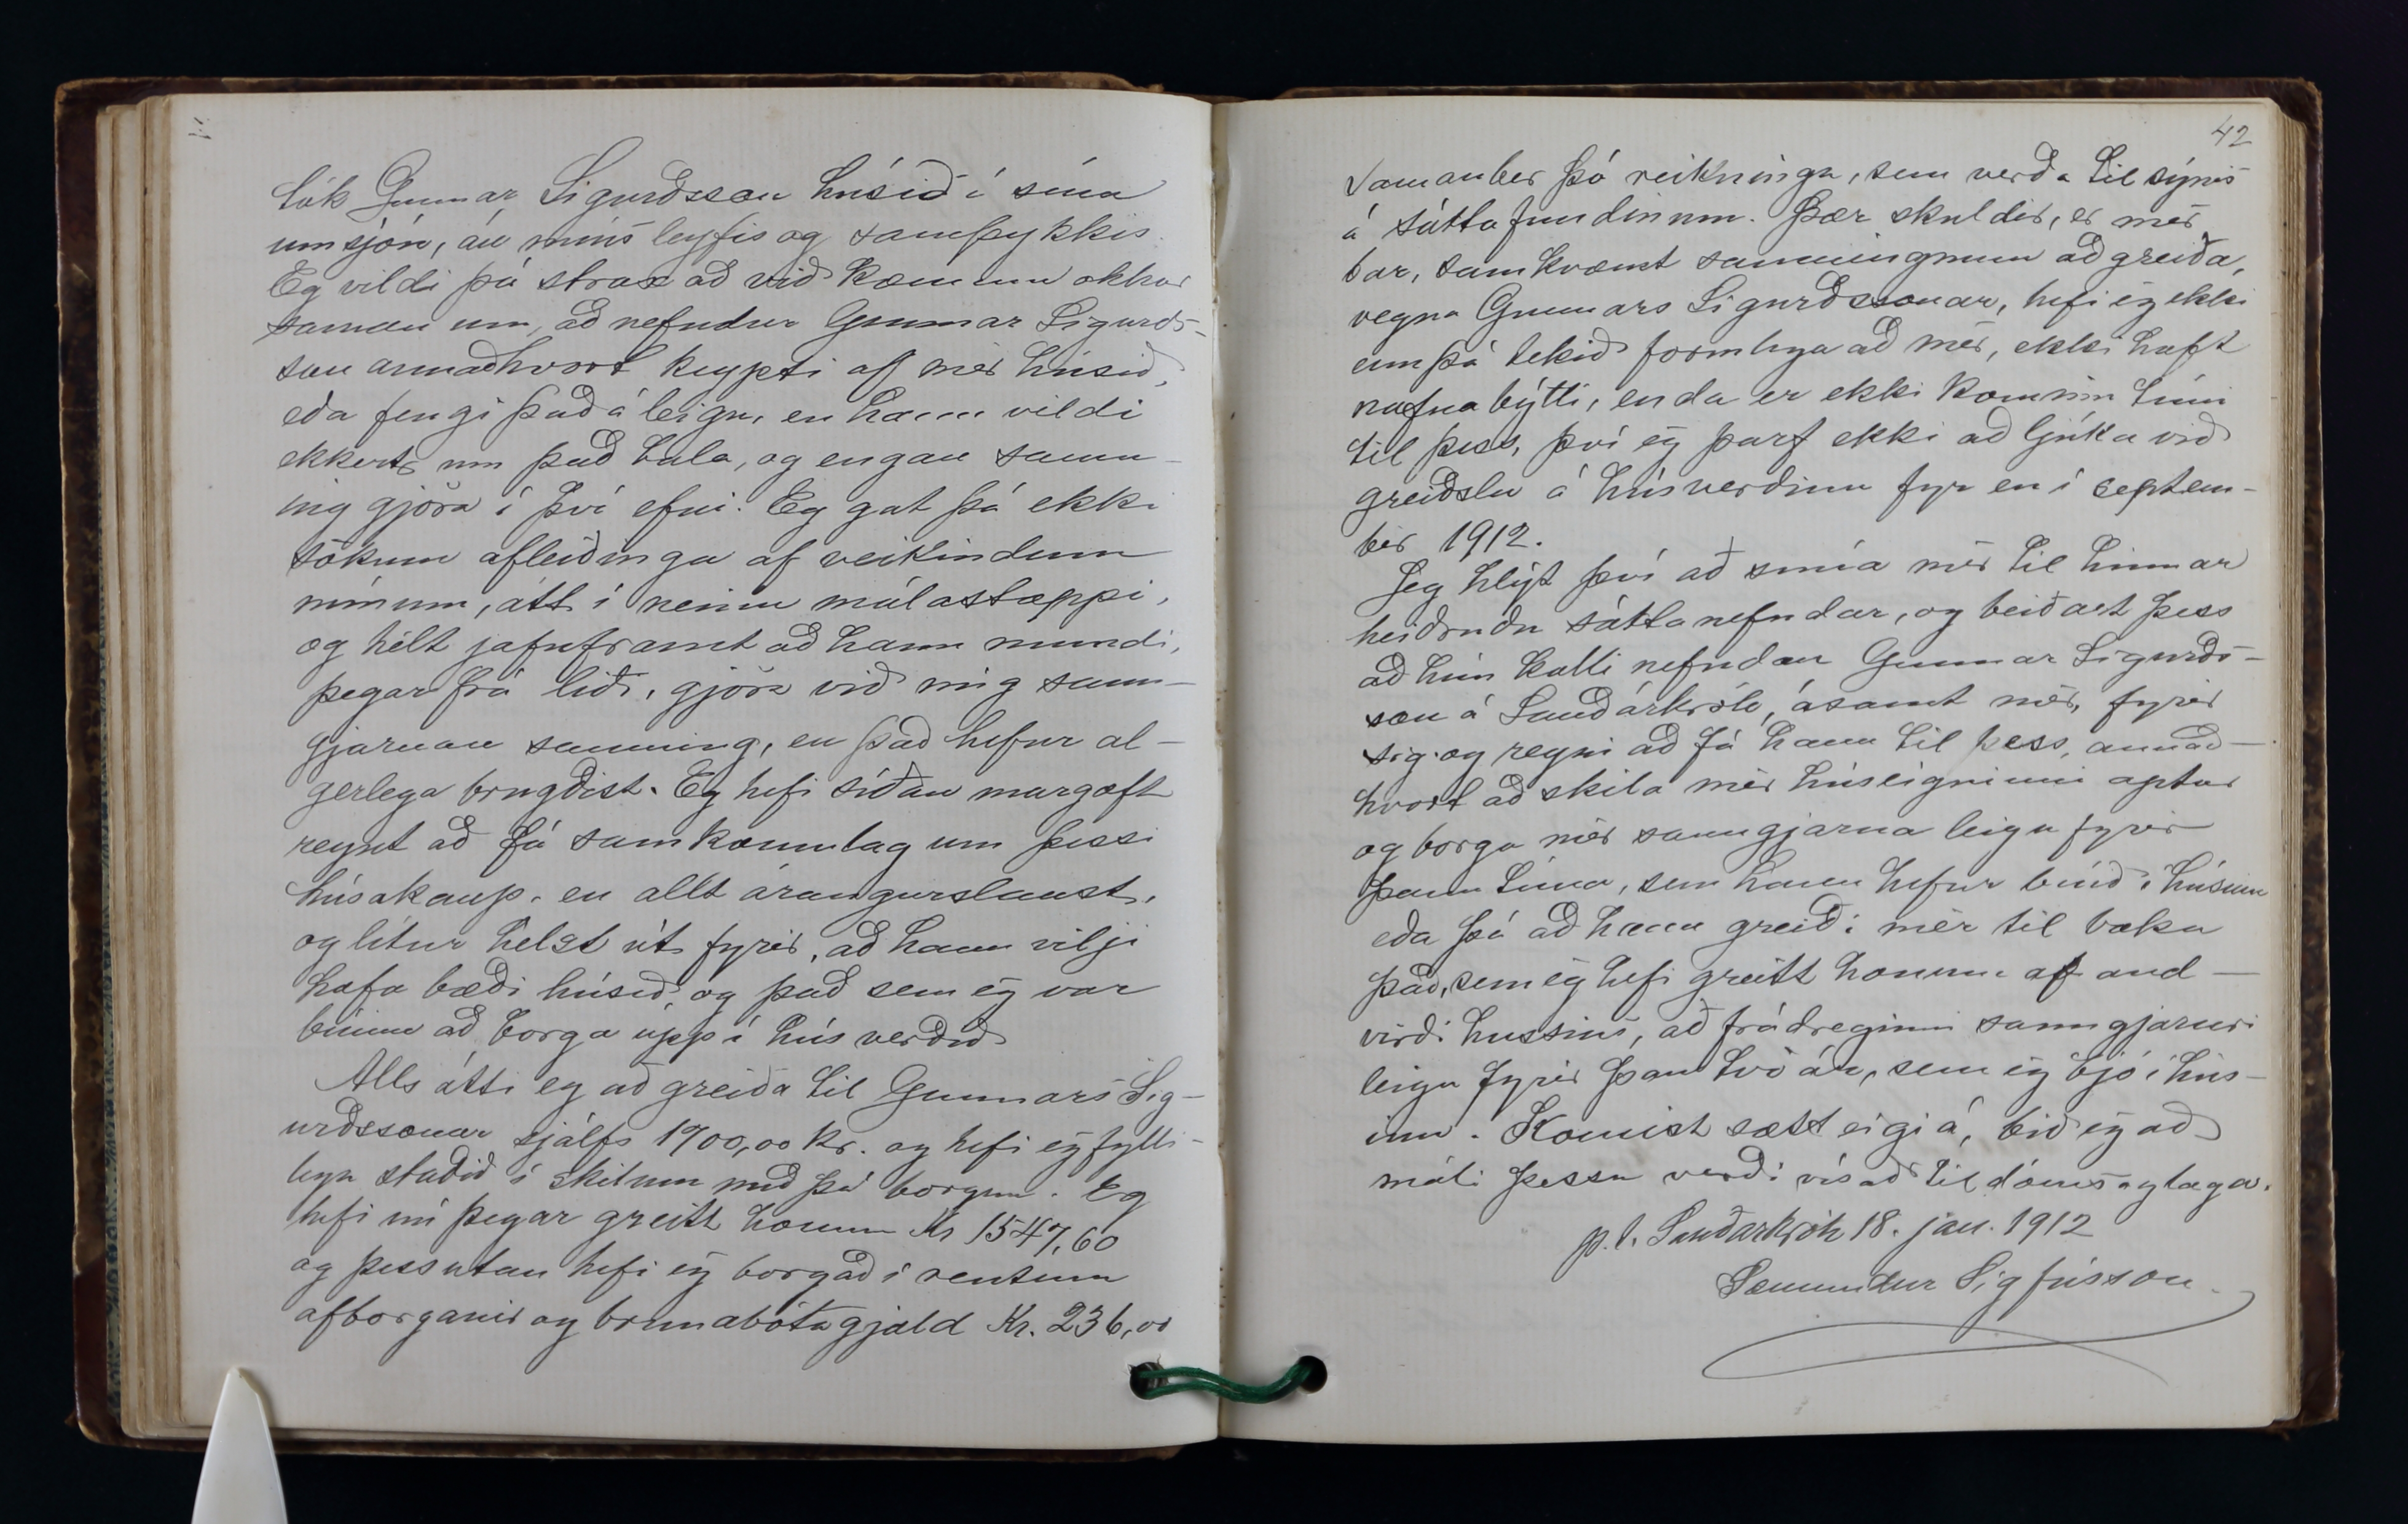 tók Gunnar Sigurðsson húsið í sína
umsjón, án míns leyfis og samþykkis.
Eg vildi þá strax að við kæmum okkur
saman um, að nefndur Gunnar Sigurðs-
son annaðhvort keypti af mér húsið,
eða fengi það á leigu, en hann vildi
ekkert um það tala, og engan samn-
ing gjöra í því efni. Eg gat þá ekki
sökum afleiðinga af veikindum
mínum, átt í neinu málastappi,
og hélt jafnframt að hann mundi,
þegar frá liði, gjöra við mig sann-
gjarnan samning, en það hefur al-
gerlega brugðist. Eg hefi síðan margoft
reynt að fá samkomulag um þessi
húsakaup, en allt árangurslaust,
og lítur helst út fyrir, að hann vilji
hafa bæði húsið, og það sem ég var
búinn að borga upp í húsverðið
Alls átti eg að greiða til Gunnars Sig-
urðssonar sjálfs 1700,00 kr. og hefi ég fylli-
lega staðið í skilum með þá borgun. Eg
hefi nú þegar greitt honum Kr 1547,60
og þess utan hefi ég borgað í rentum
afborganir og brunabótagjald Kr. 236,00
42
samanber þó reikninga, sem verða til sýnis
á sáttafundinum. Þær skuldir, er mér
bar, samkvæmt samningnum að greiða,
vegna Gunnars Sigurðssonar, hefi ég ekki
enn þá tekið formlega að mér, ekki haft
nafnabýtti, enda er ekki kominn tími
til þess, því ég þarf ekki að ljúka við
greiðslu á húsverðinu fyr en í septem-
ber 1912.
Jeg hlýt því að snúa mér til hinnar
heiðruðu sáttanefndar, og beiðast þess
að hún kalli nefndan Gunnar Sigurðs-
son á Sauðárkrók, ásamt mér, fyrir
sig og reyni að fá hann til þess, annað-
hvort að skila mér húseigninni aptur
og borga mér sanngjarna leigu fyrir
þann tíma, sem hann hefur búið í húsinu
eða þá að hann greiði mér til baka
það, sem ég hefi greitt honum af and-
virði hussins, að frádreginni sanngjarnri
leigu fyrir þau tvö ár, sem ég bjó í hús-
inu. Komist sætt eigi á, bið ég að
máli þessu verði vísað til dóms og laga.
p.t. Sauðárkrók 18. jan. 1912
Sæmundur Sigfússon